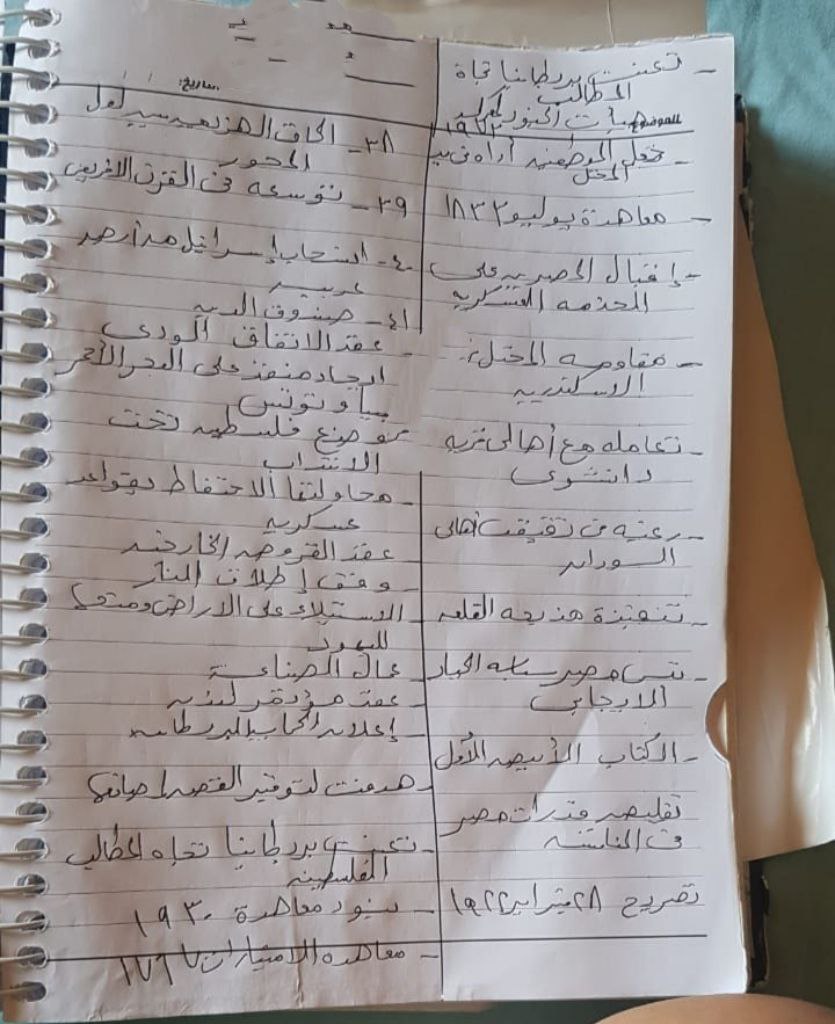 - تعنت بريطانيا تجاة
المطالب
الموضوع
- جعل الموظفيه أداه فى يد
المحتل
- معاهدة يوليو ١٨٣٣
- إقبال المصريه على
الخدمه العسكريه
- مقاومه المحتل
الاسكندريه
- تعامله مع أهالى قريه
دانشوى
- رغبه فى تفتيت أهالى
السودان
- تنفيذة مذبحه القلعه
- تبنى مصر سياسه الحياد
الايجابى
- الكتاب الأبيض الأول
تقليص قدرات مصر
فى المنافسه
تصريح ٢٨ فبراير ١٩٢٢
تاريخ: / /
٣٨ - الحاق الهزيمه بدول
المحور
٣٩ - توسعه فى القرن الافريقى
٤٠ - انسحاب إسرائيل من أرض
عربيه
٤١ - صندوق الدين
- عقد الاتفاق الودى
ايجاد منفذ على البحر الأحمر
ليبيا وتونس
وضع فلسطين تحت
الانتداب
- محاولتها الاحتفاظ بقواعد
عسكريه
- عقد القروض الخارجيه
- وقف إطلاق النار
- الاستيلاء على الاراضى ومنحها
لليهود
- عمال الصناعة
- عقد مؤتمر لندن
- إعلان الحمايه البريطانيه
- هدفت لتوفير الفرصه امامها
- تعنت بريطانيا تجاه المطالب
الفلسطينيه
- بنود معاهدة ١٩٣٠
- معاهده الامتيازات ١٧٦٧